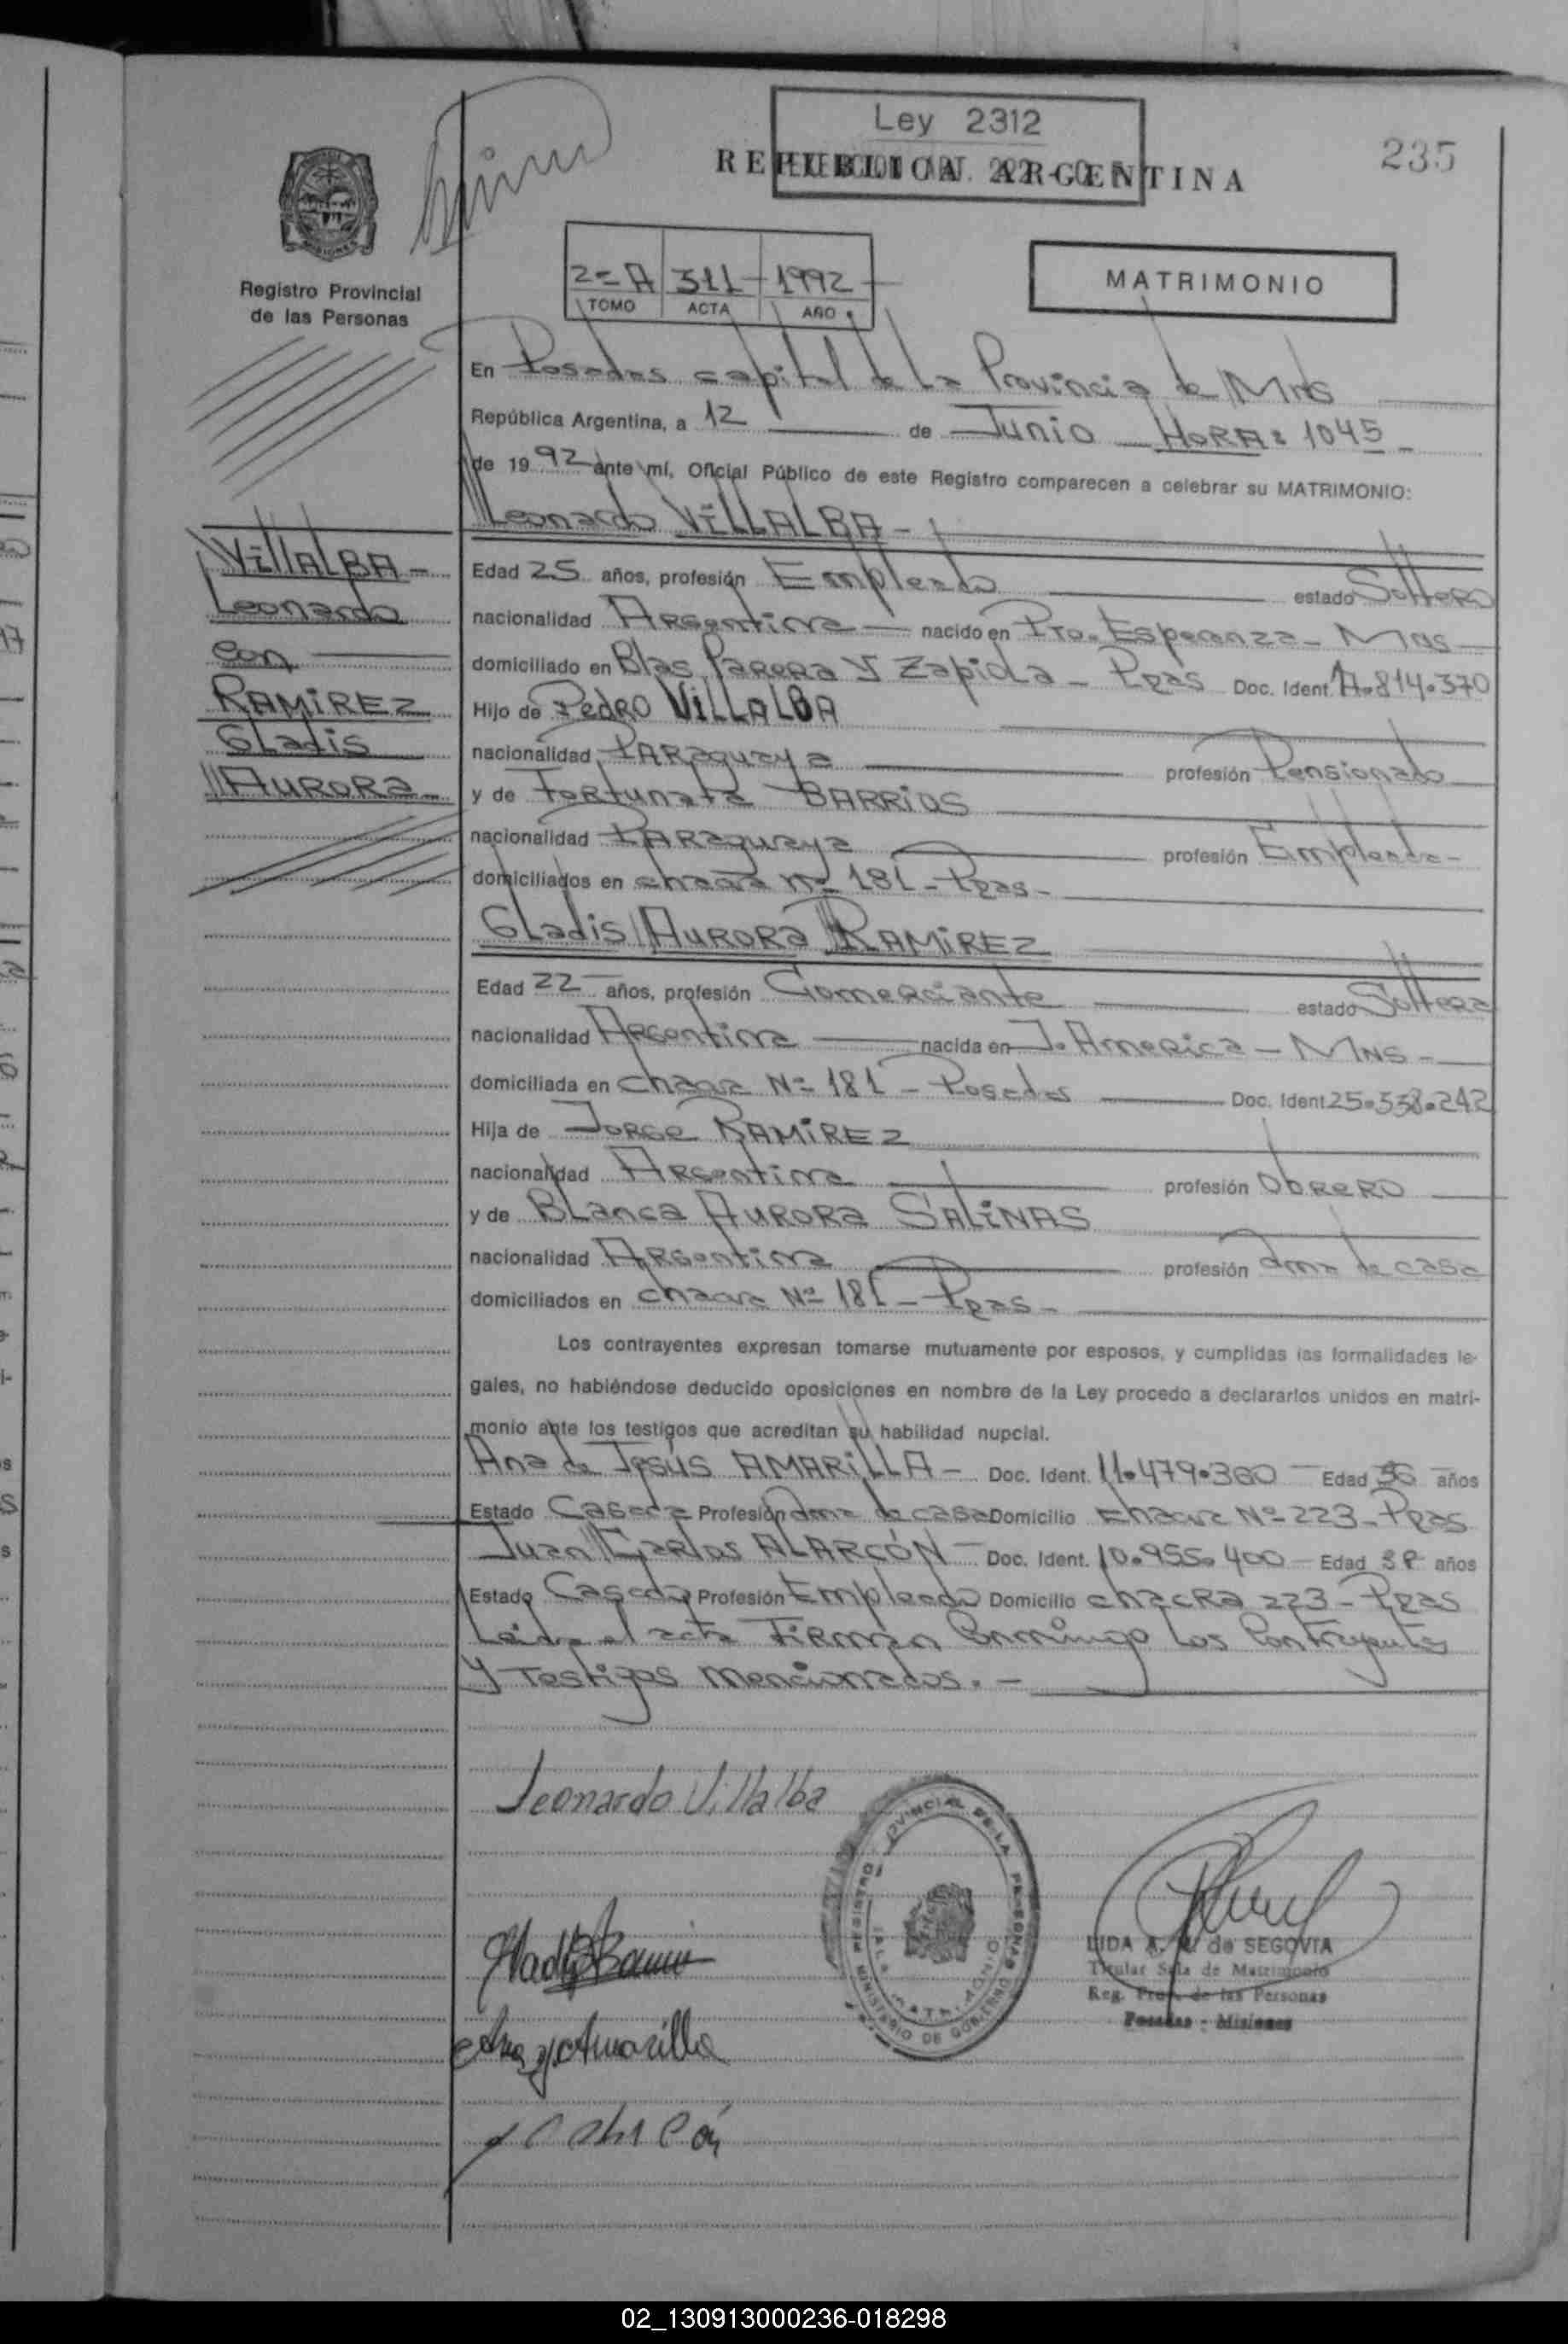 Ley 2312
REPUBLICA ARGENTINA
235
Registro Provincial
de las Personas
2=A 311 1992
TOMO ACTA AÑO
MATRIMONIO
En Posadas capital de La Provincia de Mns
República Argentina, a 12 de Junio HORA: 1045
de 1992 ante mí, Oficial Público de este Registro comparecen a celebrar su MATRIMONIO:
Leonardo VILLALBA -
VILLALBA -
Leonardo
con
RAMIREZ
GLadis
AURORA
Edad 25 años, profesión Empleado estado Soltero
nacionalidad Argentina nacido en Pto. Esperanza - Mns
domiciliado en Blas Parera y Zapiola - Pdas Doc. Ident.
Hijo de Pedro VILLALBA
nacionalidad Paraguaya profesión Pensionado
y de Fortunata BARRIOS
nacionalidad Paraguaya profesión Empleada -
domiciliados en chacra Nº 181 - Pdas -
GLadis AURORA RAMIREZ
Edad 22 años, profesión Comerciante estado Soltera
nacionalidad Argentina nacida en J. America - MNS -
domiciliada en chacra Nº 181 - Posadas Doc. Ident. 25.538.242
Hija de JORGE RAMIREZ
nacionalidad Argentina profesión Obrero
y de BLanca AURORA SALINAS
nacionalidad Argentina profesión ama de casa
domiciliados en chacra Nº 181 - Pdas -
Los contrayentes expresan tomarse mutuamente por esposos, y cumplidas las formalidades le-
gales, no habiéndose deducido oposiciones en nombre de la Ley procedo a declararlos unidos en matri-
monio ante los testigos que acreditan su habilidad nupcial.
Ana de Jesús AMARILLA - Doc. Ident. 11.479.360 Edad 36 años
Estado Casada Profesión ama de casa Domicilio chacra Nº 223 - Pdas
Juan Carlos ALARCÓN Doc. Ident. 10.955.400 Edad años
Estado Casado Profesión Empleado Domicilio chacra 223 - Pdas
Leida el acta Firman Conmigo Los Contrayentes
y Testigos Mencionados. -
Leonardo Villalba
Ana J Amarilla
LIDA de SEGOVIA
Titular Sala de Matrimonio
Reg. Prov. de las Personas
Posadas - Misiones
02_130913000236-018298